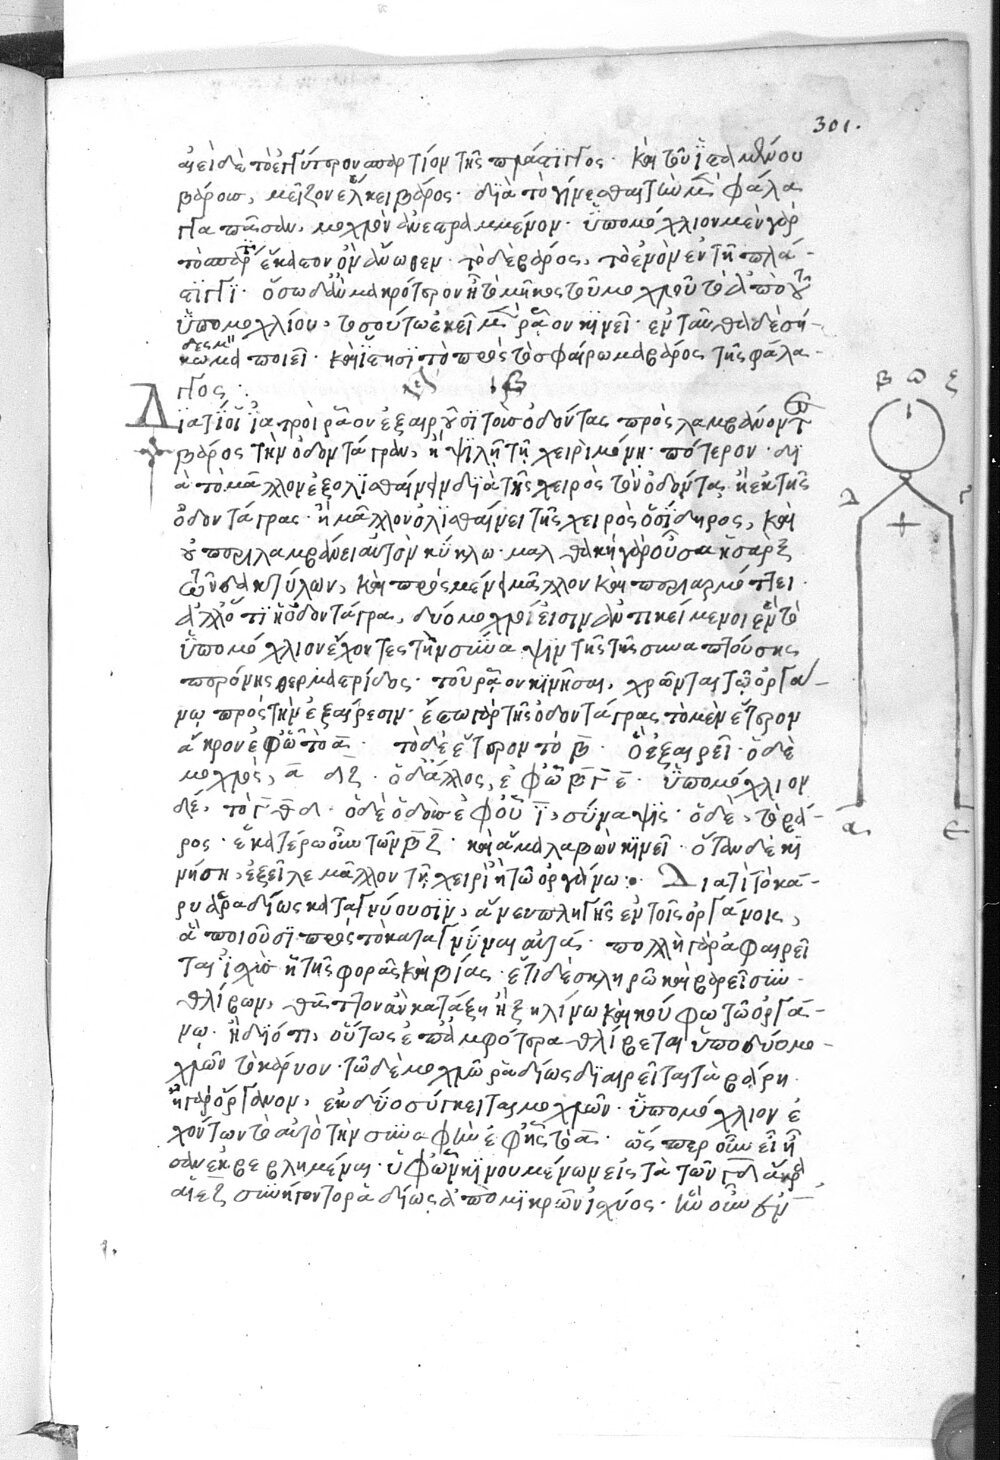 301.
ἀεὶ δὲ τὸ ἐγγύτερον σπαρτίον τῆς πλάστιγγος. καὶ τοῦ ἱσταμένου
βάρους, μεῖζον ἕλκει βάρος. διὰ τὸ γίνεσθαι τὴν μὲν φάλαγ
γα πᾶσαν, μοχλὸν ἀνεστραμμένον. ὑπομόχλιον μὲν γὰρ
τὸ σπαρτίον ἕκαστον ὂν ἄνωθεν. τὸ δὲ βάρος, τὸ ἐνὸν ἐν τῇ πλά-
στιγγι. ὅσῳ δ' ἂν μακρότερον ᾖ τὸ μῆκος τοῦ μοχλοῦ τὸ ἀπὸ τοῦ
ὑπομοχλίου, τοσούτῳ ἐκεῖ μὲν ῥᾷον κινεῖ. ἐνταῦθα δὲ σή-
κωμα ποιεῖ. καὶ ἵστησι τὸ πρὸς τὸ σφαίρωμα βάρος τῆς φάλα-
γγος :
Διατί οἱ ἰατροὶ ῥᾷον ἐξαιροῦσι τοὺς ὀδόντας προσλαμβάνοντες
βάρος τὴν ὀδοντάγραν, ἢ ψιλῇ τῇ χειρὶ μόνῃ. πότερον δι
ὰ τὸ μᾶλλον ἐξολισθαίνειν διὰ τῆς χειρὸς τὸν ὀδόντα, ἢ ἐκ τῆς
ὀδοντάγρας. ἢ μᾶλλον ὀλισθαίνει τῆς χειρὸς ὁ σίδηρος, καὶ
οὐ περιλαμβάνει αὐτὸν κύκλῳ. μαλθακὴ γὰρ οὖσα ἡ σὰρξ
τῶν δακτύλων, καὶ προσμένει μᾶλλον καὶ περιαρμόττει.
ἀλλ' ὅτι ἡ ὀδοντάγρα, δύο μοχλοί εἰσιν ἀντικείμενοι ἓν τὸ
ὑπομόχλιον ἔχοντες τὴν σύναψιν τῆς τῆς συναπτούσης
περόνης θερμαστρίδος. τοῦ ῥᾷον κινῆσαι, χρῶνται τῷ ὀργά-
νῳ πρὸς τὴν ἐξαίρεσιν. ἔστω γὰρ τῆς ὀδοντάγρας τὸ μὲν ἕτερον
ἄκρον ἐφ' ᾧ τὸ α. τὸ δὲ ἕτερον τὸ β. ὃ ἐξαιρεῖ. ὁ δὲ
μοχλὸς, α δ ζ. ὁ δ' ἄλλος, ἐφ' ᾧ β γ ε. ὑπομόχλιον
δὲ, τὸ γ θ δ. ὁ δὲ ὀδοὺς ἐφ' οὗ ι, σύναψις. ὁ δὲ, τὸ βά-
ρος. ἑκατέρῳ οὖν τῶν β ζ. καὶ ἅμα λαβὼν κινεῖ. ὅταν δὲ κι
νήσῃ, ἐξεῖλε μᾶλλον τῇ χειρὶ ἢ τῷ ὀργάνῳ :. Διατί τὰ κά-
ρυα ῥᾳδίως καταγνύουσιν, ἄνευ πληγῆς ἐν τοῖς ὀργάνοις,
ἃ ποιοῦσι πρὸς τὸ καταγνύναι αὐτά. πολλὴ γὰρ ἀφαιρεῖ
ται ἰσχὺς ἡ τῆς φορᾶς καὶ βίας. ἔτι δὲ σκληρῷ καὶ βαρεῖ συν-
θλίβων, θᾶττον ἂν κατάξῃ ἢ ξυλίνῳ καὶ κούφῳ τῷ ὀργά-
νῳ. ἢ διότι, οὕτως ἐπ' ἀμφότερα θλίβεται ὑπὸ δύο μο-
χλῶν τὸ κάρυον. τῷ δὲ μοχλῷ ῥᾳδίως διαιρεῖται τὰ βάρη.
τὸ γὰρ ὄργανον, ἐκ δύο σύγκειται μοχλῶν. ὑπομόχλιον ἐ
χόντων τὸ αὐτὸ τὴν συναφὴν ἐφ' ἧς τὸ α. ὥσπερ οὖν εἰ ἦ
σαν ἐκβεβλημέναι. ὑφ' ὧν κινουμένων εἰς τὰ τῶν γ δ ἄκρα
αἱ ε ζ συνήγοντο ῥᾳδίως ἀπὸ μικρῶν ἰσχύος. ἣν οὖν ἐν
β ω ξ
δ
γ
α
ε